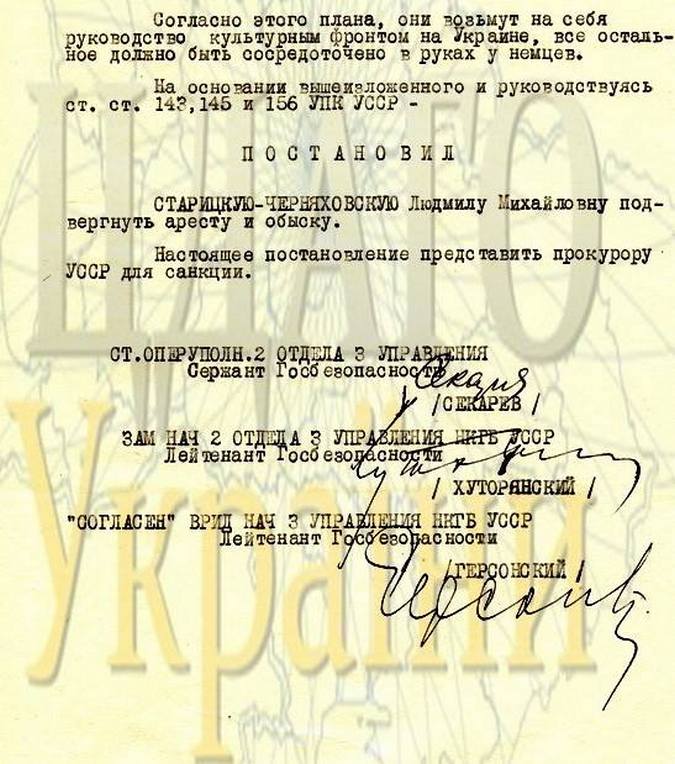 Согласно этого плана, они возьмут на себя
руководство культурным фронтом на Украине, все осталь-
ное должно быть сосредоточено в руках у немцев.
На основании вышеизложенного и руководствуясь
ст. ст. 143,145 и 156 УПК УССР -
ПОСТАНОВИЛ
СТАРИЦКУЮ-ЧЕРНЯХОВСКУЮ Людмилу Михайловну под-
вергнуть аресту и обыску.
Настоящее постановление представить прокурору
УССР для санкции.
СТ.ОПЕРУПОЛН.2 ОТДЕЛА 3 УПРАВЛЕНИЯ
Сержант Госбезопасности
/СЕКАРЕВ /
ЗАМ НАЧ 2 ОТДЕЛА 3 УПРАВЛЕНИЯ НКГБ УССР
Лейтенант Госбезопасности
/ ХУТОРЯНСКИЙ /
"СОГЛАСЕН" ВРИД НАЧ 3 УПРАВЛЕНИЯ НКГБ УССР
Лейтенант Госбезопасности
/ГЕРСОНСКИЙ /
ЦДАГО
України